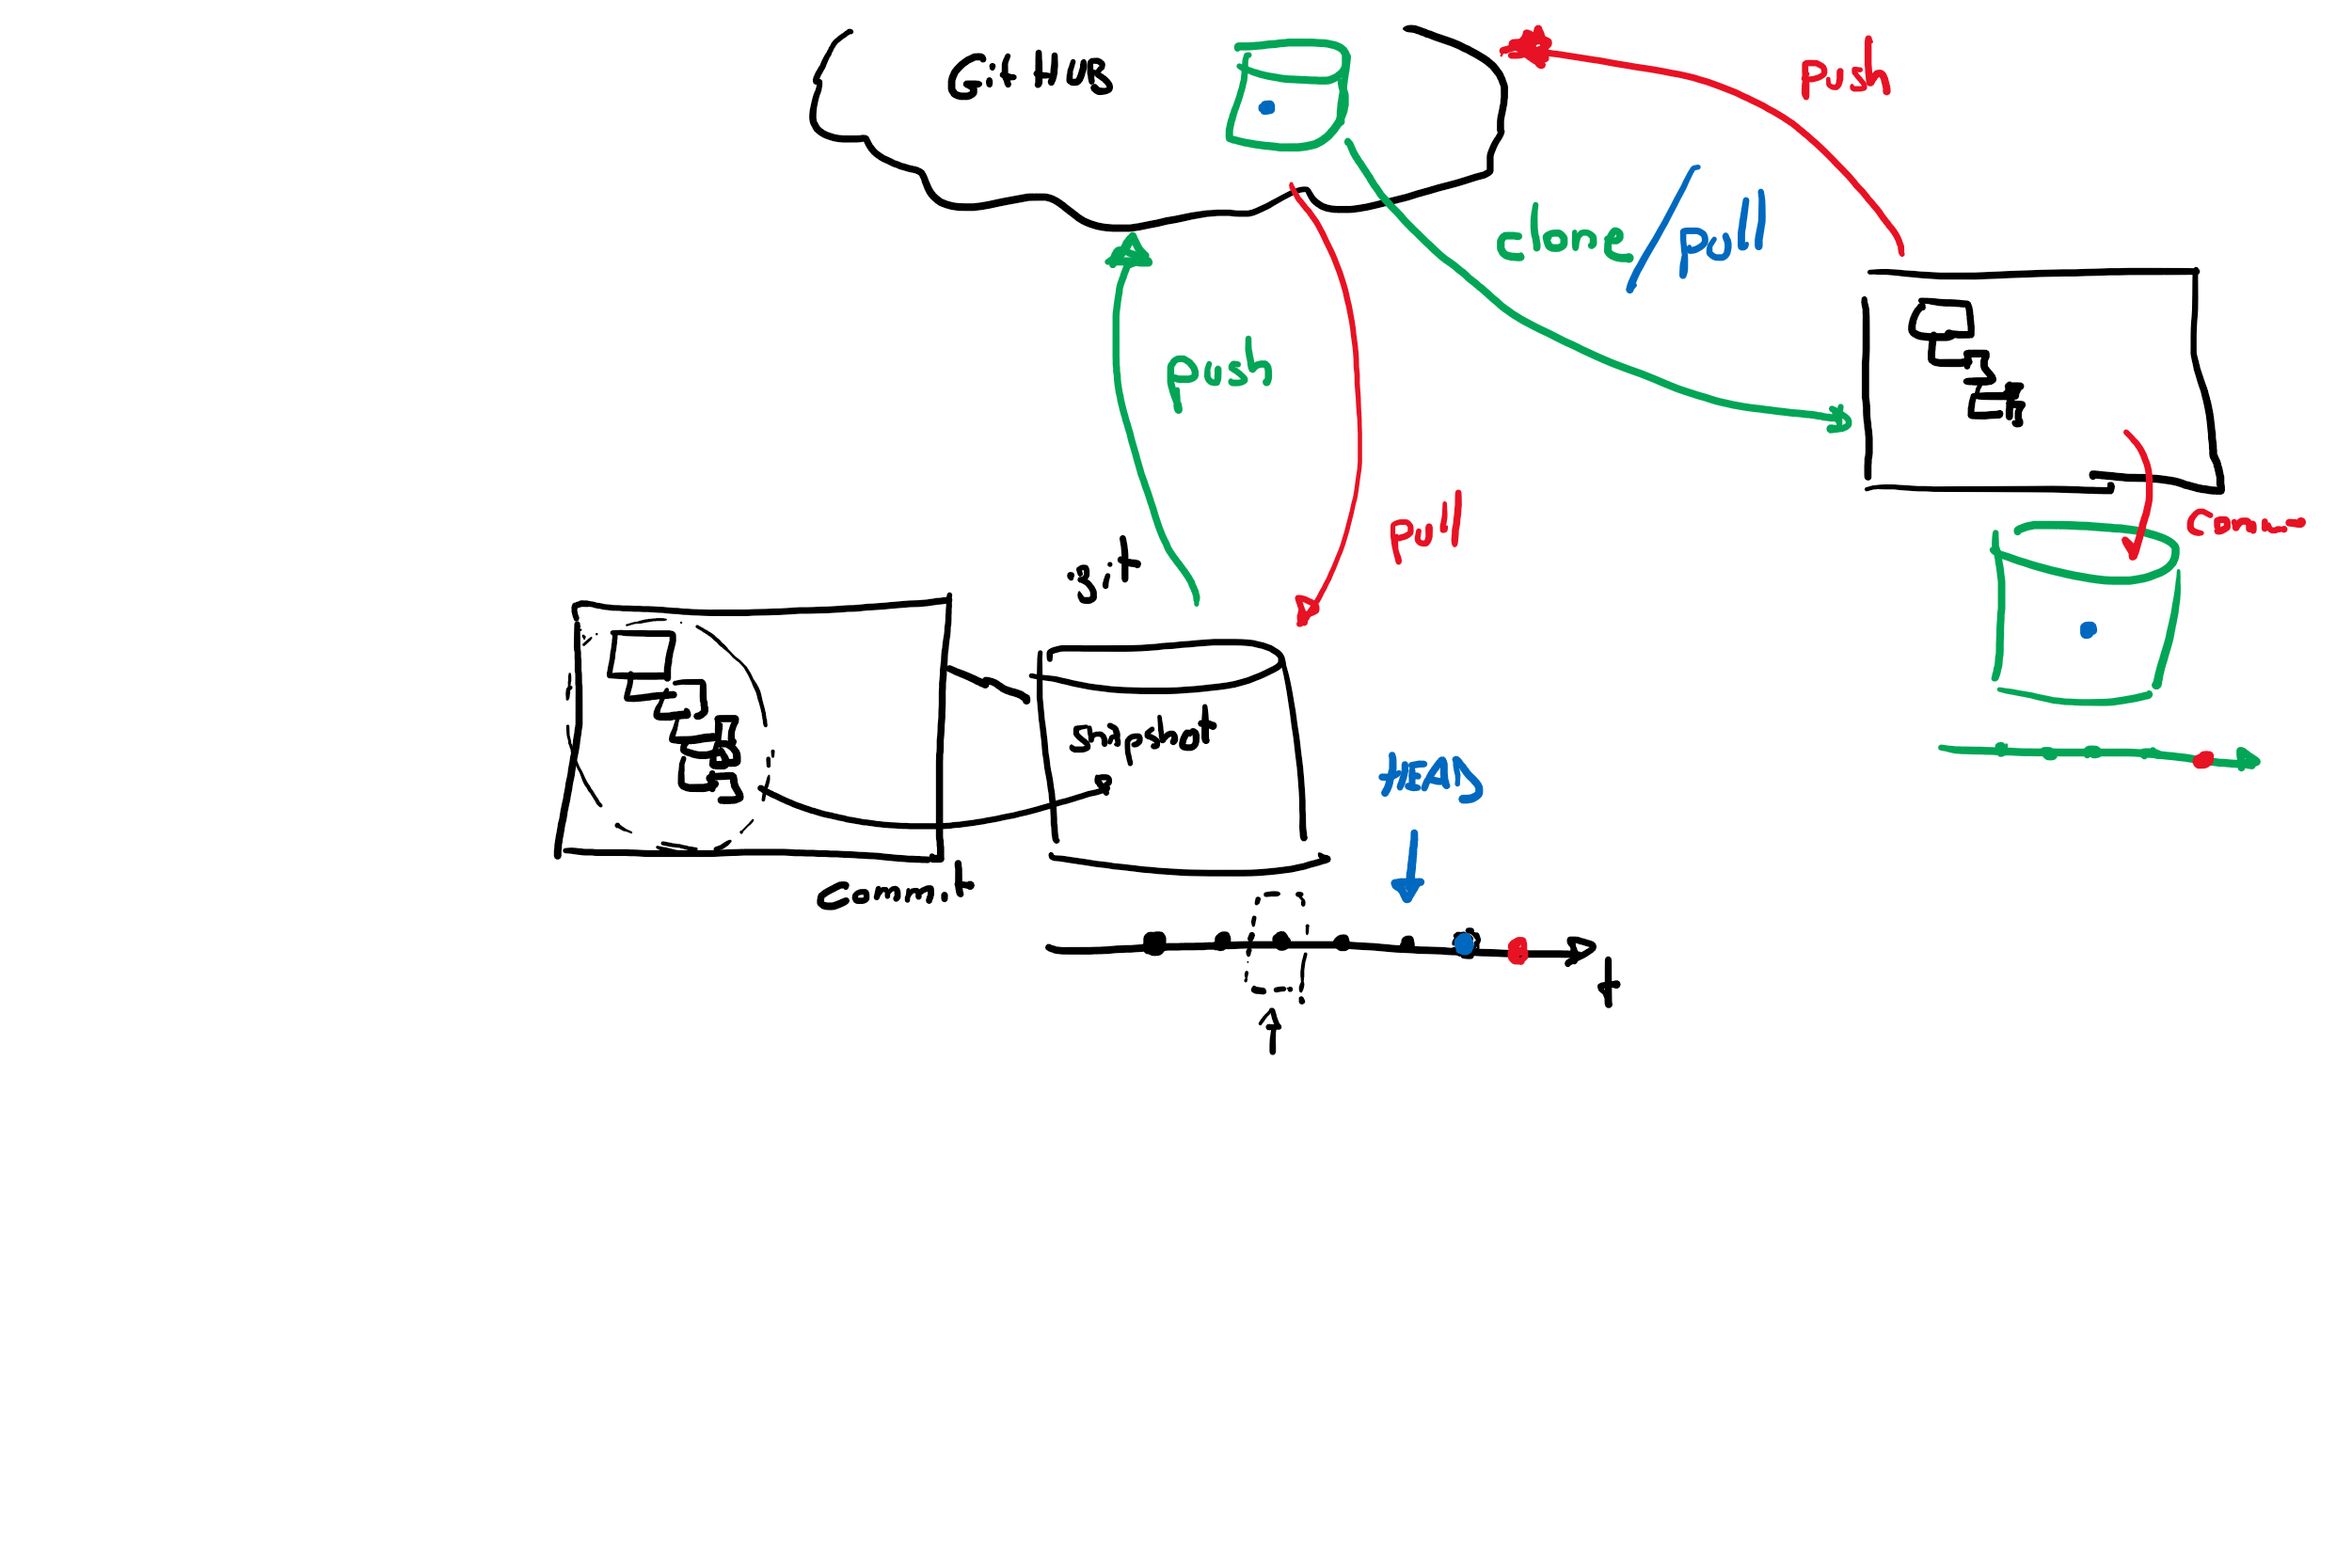 GitHub
push
clone/pull
push
pull
comm
git
snapshot
HEAD
commit
t